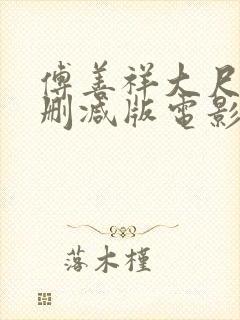 傅善祥大尺
删减版電影
落木槿